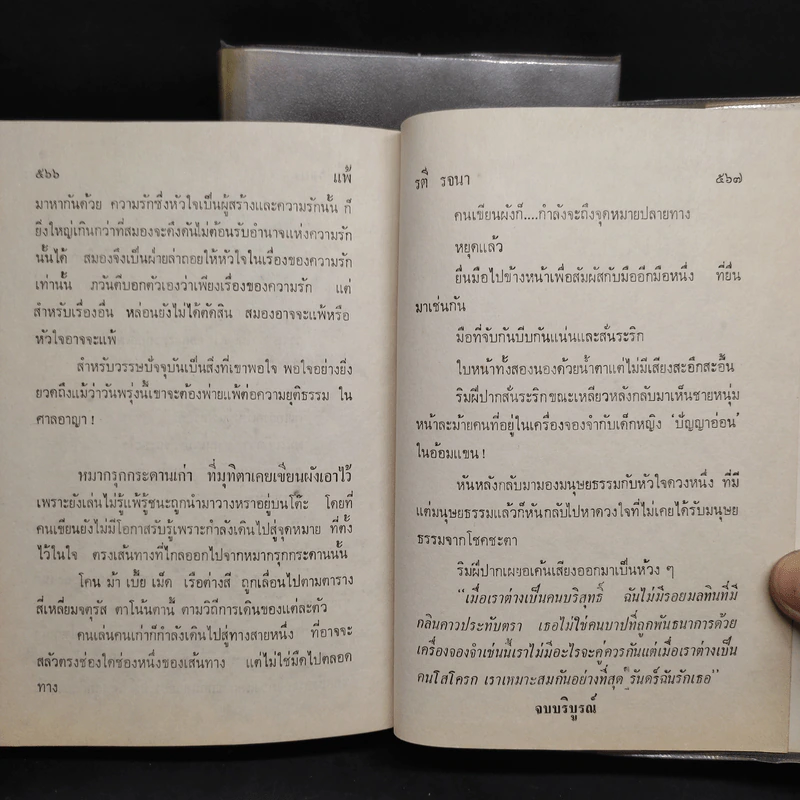 ๕๖๖ แพ้
มาหากันด้วย ความรักซึ่งหัวใจเป็นผู้สร้างและความรักนั้น ก็
ยิ่งใหญ่เกินกว่าที่สมองจะดึงดันไม่ต้อนรับอำนาจแห่งความรัก
นั้นได้ สมองจึงเป็นฝ่ายล่าถอยให้หัวใจในเรื่องของความรัก
เท่านั้น ภวันตีบอกตัวเองว่าเพียงเรื่องของความรัก แต่
สำหรับเรื่องอื่น หล่อนยังไม่ได้ตัดสิน สมองอาจจะแพ้หรือ
หัวใจอาจจะแพ้
สำหรับวรรษปัจจุบันเป็นสิ่งที่เขาพอใจ พอใจอย่างยิ่ง
ยวดถึงแม้ว่าวันพรุ่งนี้เขาจะต้องพ่ายแพ้ต่อความยุติธรรม ใน
ศาลอาญา !
หมากรุกกระดานเก่า ที่มุทิตาเคยเขียนผังเอาไว้
เพราะยังเล่นไม่รู้แพ้รู้ชนะถูกนำมาวางหราอยู่บนโต๊ะ โดยที่
คนเขียนยังไม่มีโอกาสรับรู้เพราะกำลังเดินไปสู่จุดหมาย ที่ตั้ง
ไว้ในใจ ตรงเส้นทางที่ไกลออกไปจากหมากรุกกระดานนั้น
โคน ม้า เบี้ย เม็ด เรือต่างสี ถูกเลื่อนไปตามตาราง
สี่เหลี่ยมจตุรัส ตาโน้นตานี้ ตามวิถีการเดินของแต่ละตัว
คนเล่นคนเก่าก็กำลังเดินไปสู่ทางสายหนึ่ง ที่อาจจะ
สลัวตรงช่องใดช่องหนึ่งของเส้นทาง แต่ไม่ใช่มืดไปตลอด
ทาง
รตี รจนา ๕๖๗
คนเขียนผังก็....กำลังจะถึงจุดหมายปลายทาง
หยุดแล้ว
ยื่นมือไปข้างหน้าเพื่อสัมผัสกับมืออีกมือหนึ่ง ที่ยื่น
มาเช่นกัน
มือที่จับกันบีบกันแน่นและสั่นระริก
ใบหน้าทั้งสองนองด้วยน้ำตาแต่ไม่มีเสียงสะอึกสะอื้น
ริมฝีปากสั่นระริกขณะเหลียวหลังกลับมาเห็นชายหนุ่ม
หน้าละม้ายคนที่อยู่ในเครื่องจองจำกับเด็กหญิง ‘ปัญญาอ่อน’
ในอ้อมแขน !
หันหลังกลับมามองมนุษยธรรมกับหัวใจดวงหนึ่ง ที่มี
แต่มนุษยธรรมแล้วก็หันกลับไปหาดวงใจที่ไม่เคยได้รับมนุษย
ธรรมจากโชคชะตา
ริมฝีปากเผยอเค้นเสียงออกมาเป็นห้วง ๆ
“เมื่อเราต่างเป็นคนบริสุทธิ์ ฉันไม่มีรอยมลทินที่มี
กลิ่นคาวประทับตรา เธอไม่ใช่คนบาปที่ถูกพันธนาการด้วย
เครื่องจองจำเช่นนี้เราไม่มีอะไรจะคู่ควรกันแต่เมื่อเราต่างเป็น
คนโสโครก เราเหมาะสมกันอย่างที่สุด รันตร์ฉันรักเธอ”
จบบริบูรณ์